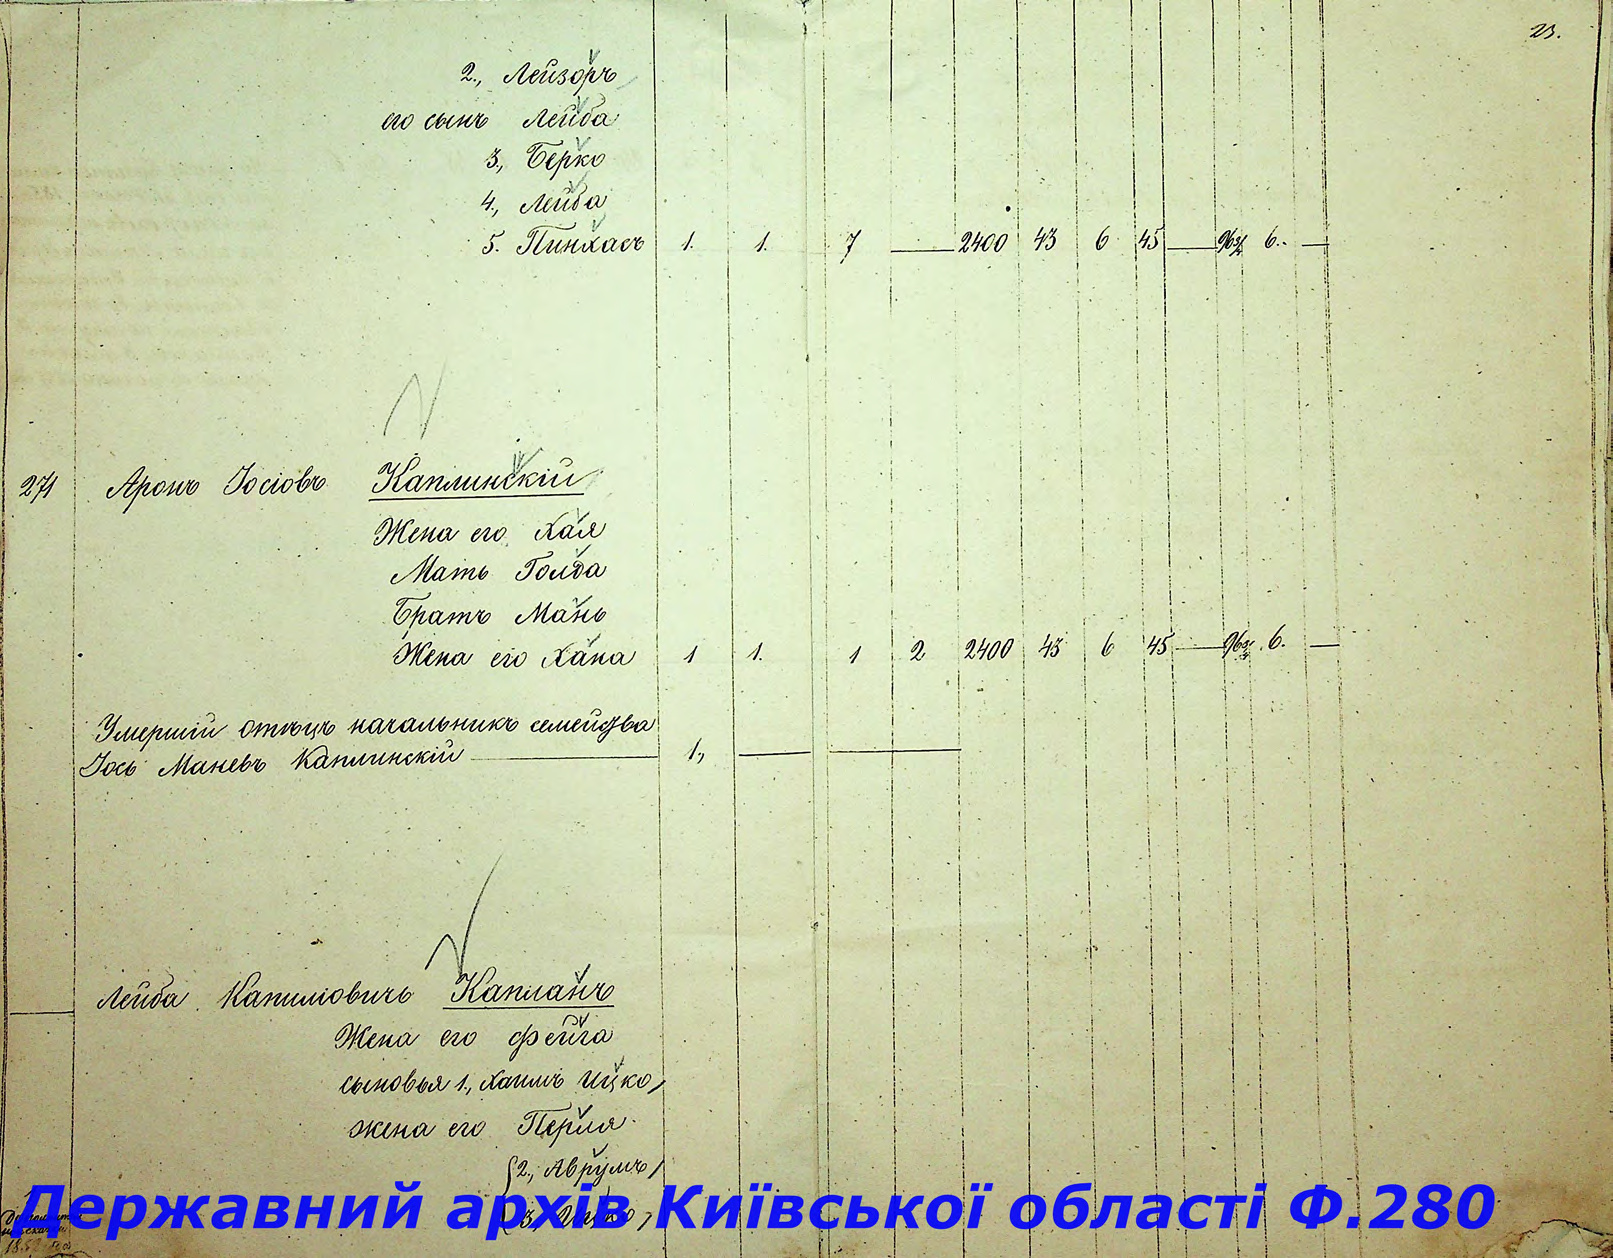 23.
2., Лейзоръ
его сынъ Лейба
3., Берко
4., Лейба
5. Пинхасъ 1. 1. 7 — 2400 43 6 45 — 96¾ 6. —
271 Аронъ Іосіовъ Каплинскій
Жена его Хая
Мать Голда
Братъ Мань
Жена его Хана 1 1. 1 2 2400 43 6 45 — 96¾ 6. —
Умершій отецъ начальникъ семейства
Іось Маневъ Каплинскій — 1., — —
Лейба Капиліовичъ Капланъ
Жена его Фейга
сыновья 1., Хаимъ Ицко,
жена его Перля
2., Аврумъ,
3, Ицко,
Державний архів Київської області Ф.280